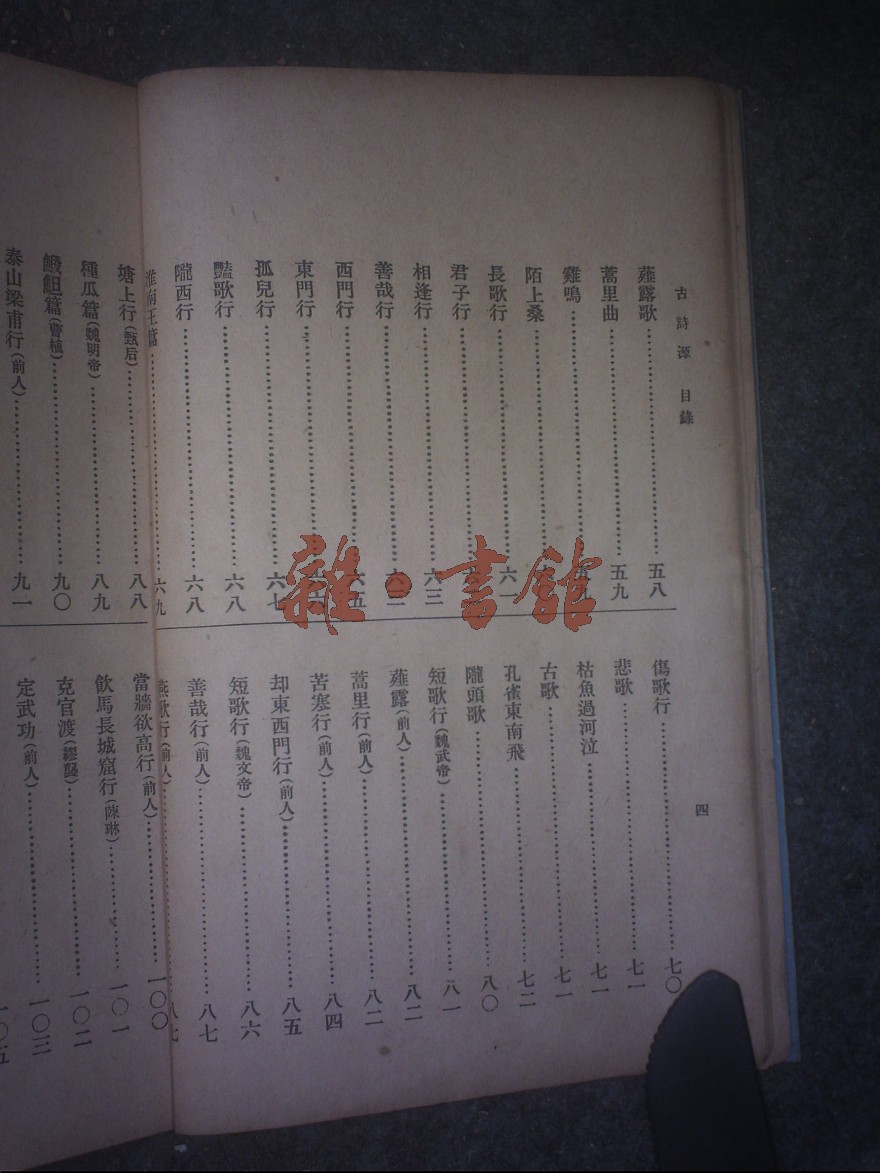 古詩源 目錄
四
薤露歌……五八
蒿里曲……五九
雞鳴……五九
陌上桑……
長歌行……六一
君子行……
相逢行……六三
善哉行……
西門行……六五
東門行……
孤兒行……六七
豔歌行……六八
隴西行……六八
淮南王篇……六九
傷歌行……七〇
悲歌……七一
枯魚過河泣……七一
古歌……七一
孔雀東南飛……七二
隴頭歌……八〇
短歌行(魏武帝)……八一
薤露(前人)……八二
蒿里行(前人)……八二
苦塞行(前人)……八四
却東西門行(前人)……八五
短歌行(魏文帝)……八六
善哉行(前人)……八七
燕歌行(前人)……八七
塘上行(甄后)……八八
種瓜篇(魏明帝)……八九
䱇䱉篇(曹植)……九〇
泰山梁甫行(前人)……九一
當牆欲高行(前人)……一〇〇
飲馬長城窟行(陳琳)……一〇一
克官渡(繆襲)……一〇二
定武功(前人)……一〇三
一〇五
雜·書館